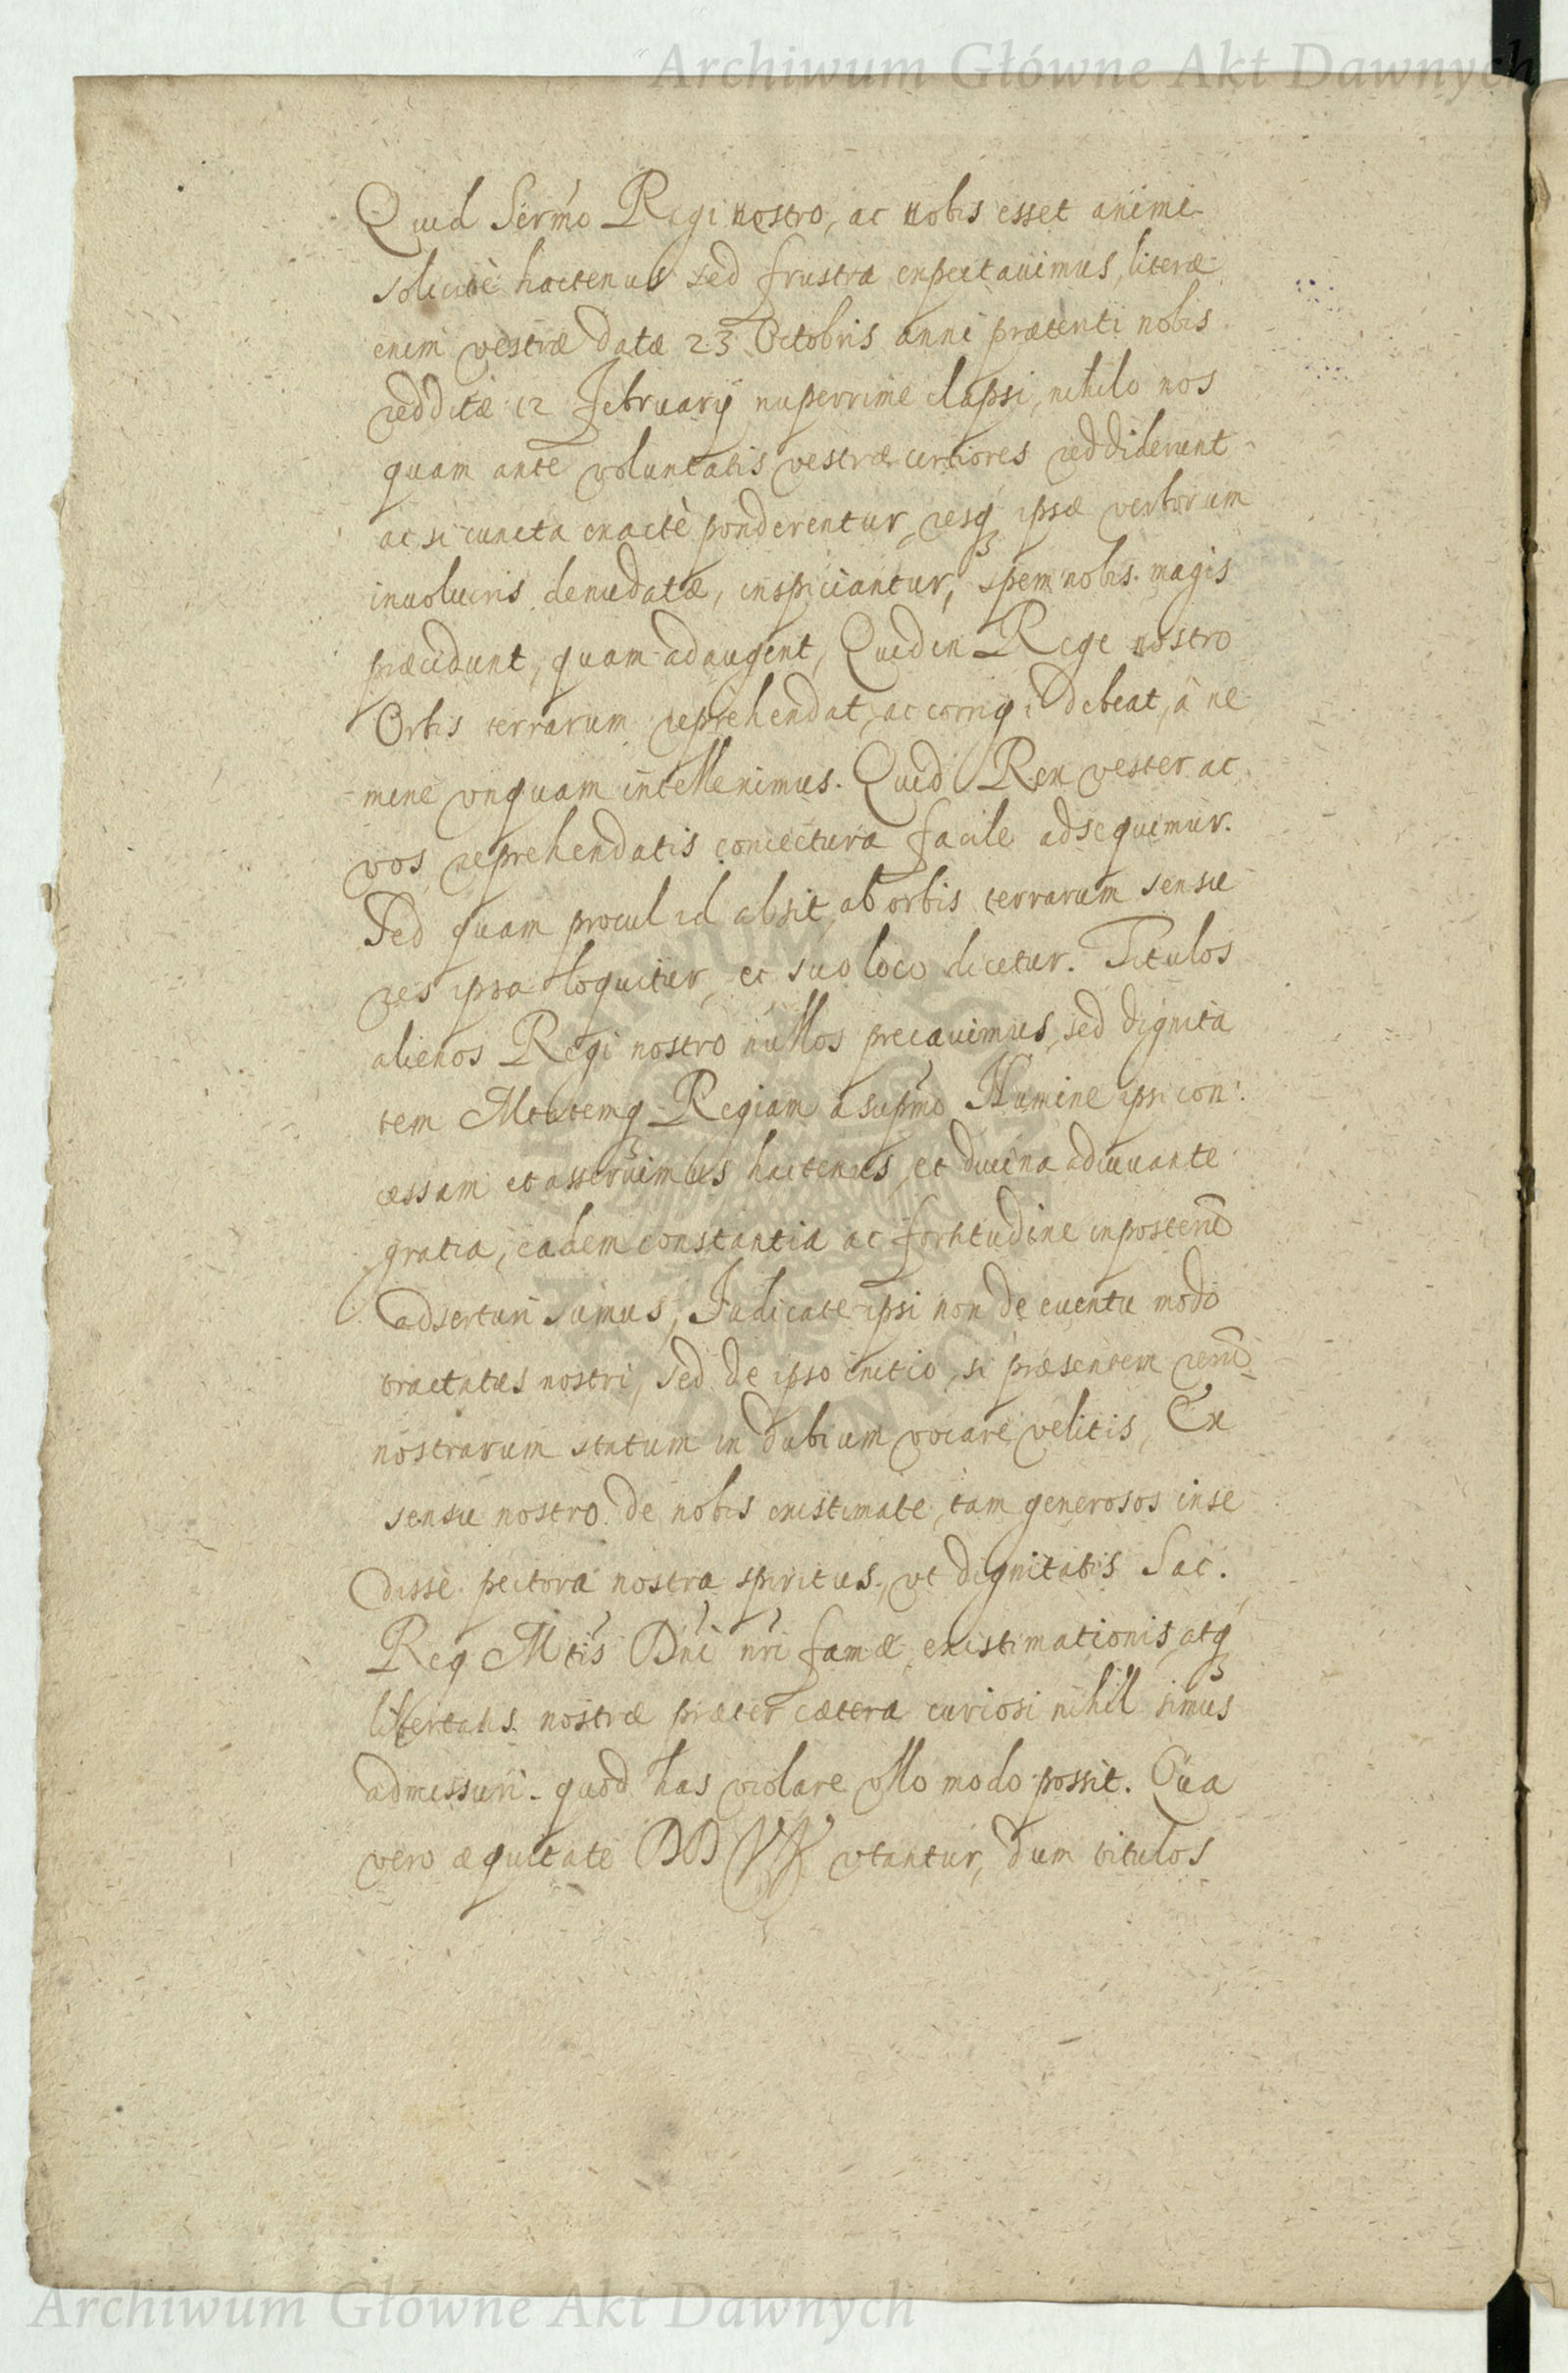 Archiwum Główne Akt Dawnych
Quid Sermo Regi nostro, ac nobis esset animi
solicitè hactenus sed frustra expectauimus, literæ
enim vestræ datæ 23 Octobris anni præteriti nobis
redditæ 12 February nuperrime elapsi, nihilo nos
quam ante voluntatis vestræ certiores reddiderunt
ac si cuncta exactè ponderentur, resq ipsæ verborum
inuolucris denudatæ, inspiciantur, spem nobis magis
præcidunt, quam adaugent, Quid in Rege nostro
Orbis terrarum reprehendat, ac corrigi debeat, à ne
mine vnquam intelleximus. Quid Rex vester ac
vos reprehendatis coniectura facile adsequimur.
Sed quam procul id absit ab orbis terrarum sensu
res ipsa loquitur, et suo loco dicetur. Titulos
alienos Regi nostro nullos precauimus, sed dignita
tem Mtatemq Regiam a supmo Numine ipsi con:
cessam et asseruimus hactenus, et diuina adiuuante
gratia, eadem constantia ac fortitudine inposterũ
adserturi sumus, Iudicate ipsi non de euentu modo
tractatus nostri, sed de ipso initio, si præsentem rerũ
nostrarum statum in dubium vocare velitis, Ex
sensu nostro de nobis existimate, tam generosos inse
disse pectora nostra spiritus, vt dignitatis Sac.
Reg Mtis Dni nri famæ, existimationis, atq
libertatis nostræ præter cætera curiosi nihil simus
admissuri quod has violare vllo modo possit. Qua
vero æquitate DD VV vtantur, dum titulos
Archiwum Główne Akt Dawnych